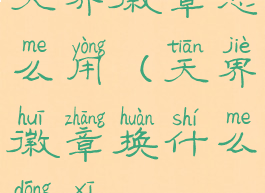 天界徽章怎
me yòng tiān jiè
么用（天界
huī zhāng huàn shí me
徽章换什么
dōng xī